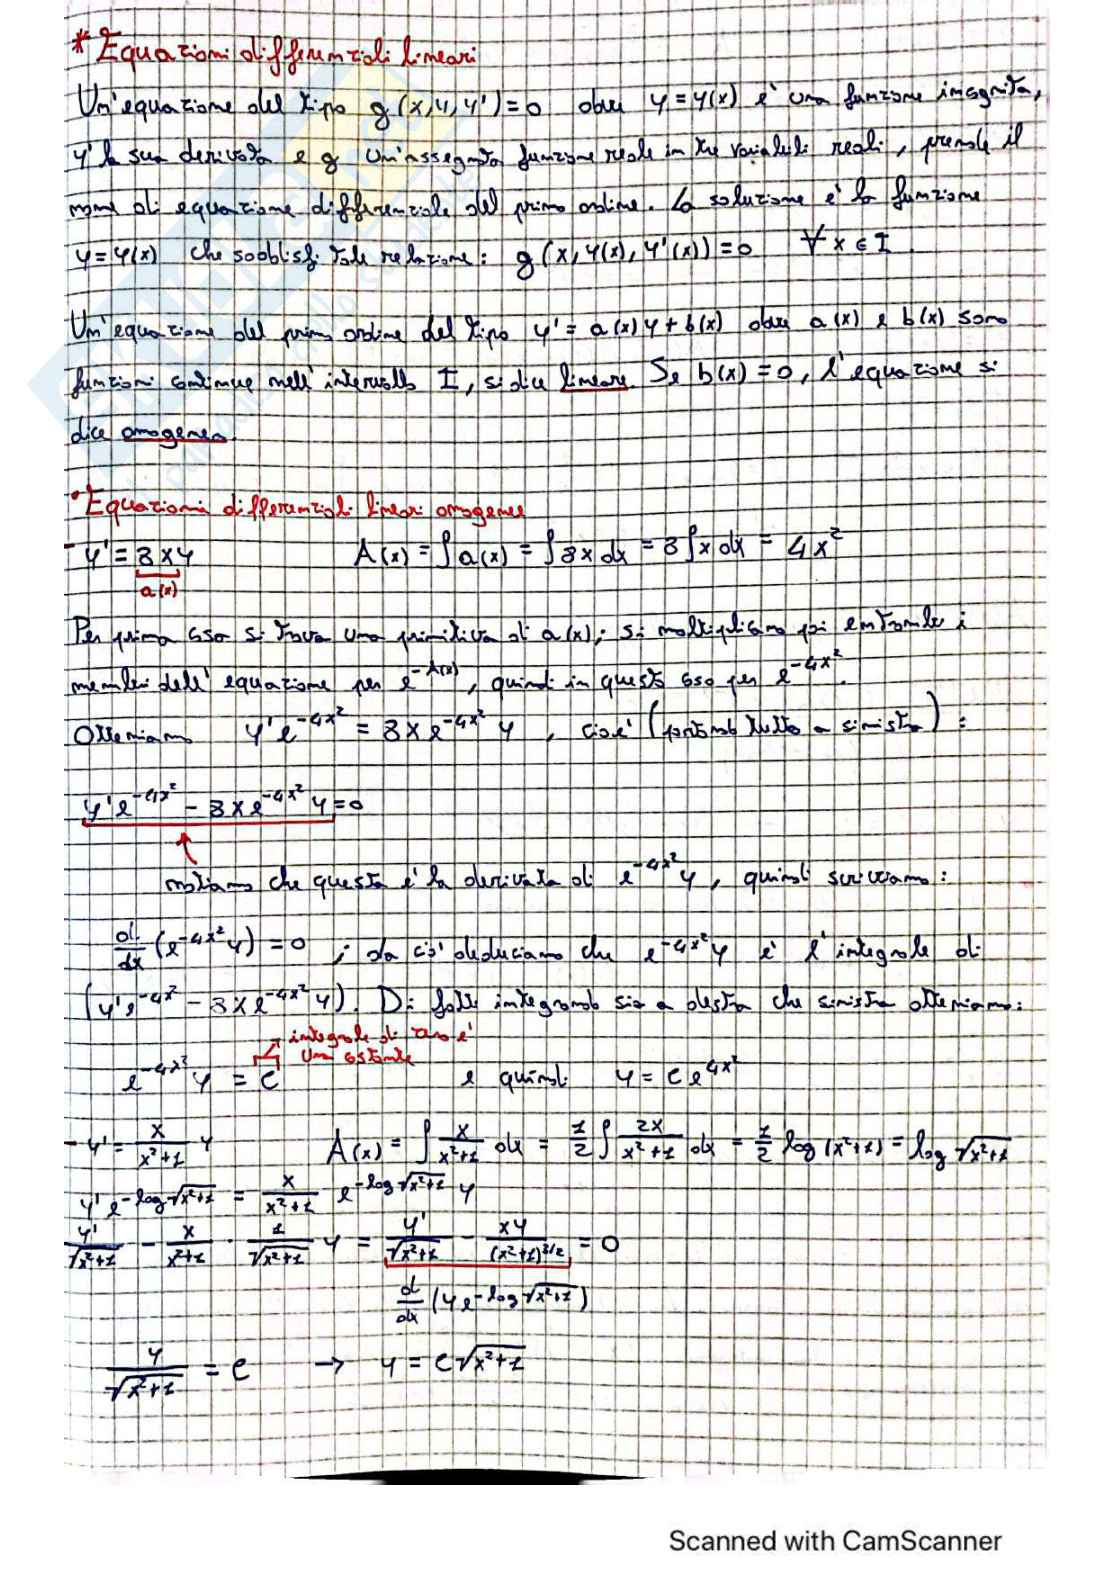 * Equazioni differenziali lineari
Un'equazione del tipo g(x,y,y')=0 dove y=y(x) e' una funzione incognita,
y' la sua derivata e g un'assegnata funzione reale in tre variabili reali, prende il
nome di equazione differenziale del primo ordine. La soluzione e' la funzione
y=y(x) che soddisfi tale relazione: g(x,y(x),y'(x))=0 ∀x∈I.
Un'equazione del primo ordine del tipo y'=a(x)y+b(x) dove a(x) e b(x) sono
funzioni continue nell'intervallo I, si dice lineare. Se b(x)=0, l'equazione si
dice omogenea.
• Equazioni differenziali lineari omogenee
- y'=8xy A(x)=∫a(x)=∫8xdx=8∫xdx=4x²
a(x)
Per prima cosa si trova una primitiva di a(x); si moltiplicano poi entrambi i
membri dell'equazione per e^-A(x), quindi in questo caso per e^-4x².
Otteniamo y'e^-4x² = 8xe^-4x² y, cioe' (portando tutto a sinistra):
y'e^-4x² - 8xe^-4x² y=0
notiamo che questa e' la derivata di e^-4x² y, quindi scriviamo:
d/dx (e^-4x² y)=0; da cio' deduciamo che e^-4x² y e' l'integrale di
(y'e^-4x² - 8xe^-4x² y). Di fatti integrando sia a destra che sinistra otteniamo:
→ integrale di zero e'
una costante
e^-4x² y = c e quindi y=ce^4x²
- y'= x/(x²+1) y A(x)=∫ x/(x²+1) dx = 1/2 ∫ 2x/(x²+1) dx = 1/2 log(x²+1)=log√(x²+1)
y' e^-log√(x²+1) = x/(x²+1) e^-log√(x²+1) y
y'/√(x²+1) - x/(x²+1) · 1/√(x²+1) y = y'/√(x²+1) - xy/(x²+1)^3/2 = 0
d/dx (y e^-log√(x²+1))
y/√(x²+1) = c → y=c√(x²+1)
Scanned with CamScanner